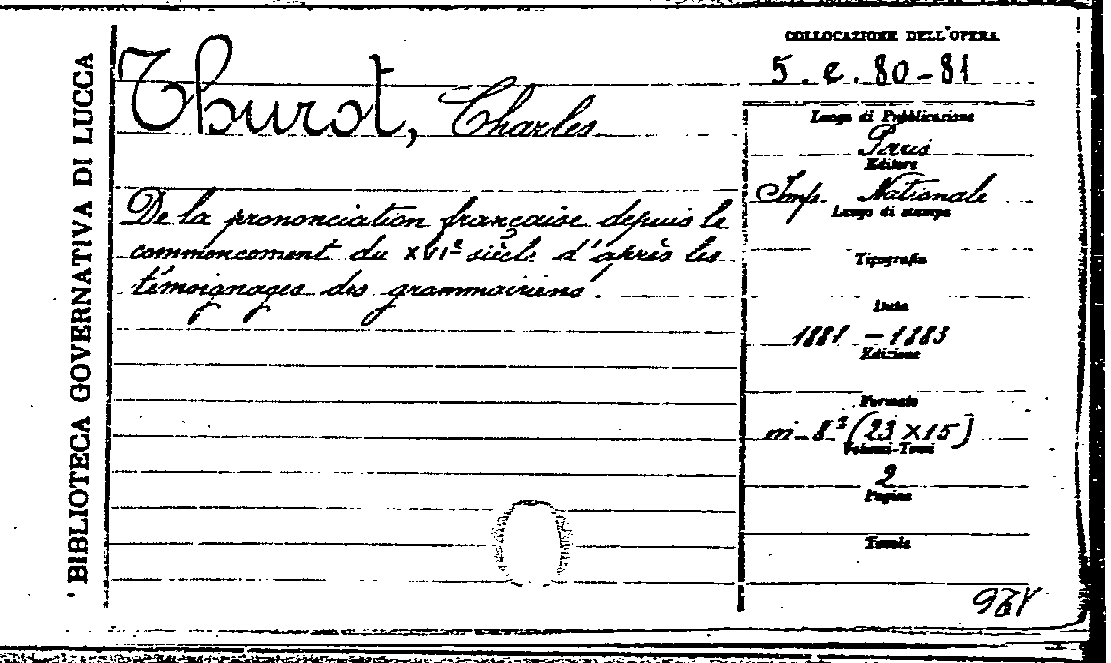 BIBLIOTECA GOVERNATIVA DI LUCCA
Thurot, Charles
De la prononciation française depuis le
commencement du XVIe siècle d'après les
témoignages des grammairiens.
COLLOCAZIONE DELL'OPERA
5. e. 80-81
Luogo di Pubblicazione
Paris
Editore
Imp. Nationale
Luogo di stampa
Tipografia
Data
1881 - 1883
Edizione
Formato
in-8° (23 x 15)
Volumi-Tomi
2
Pagine
Tavole